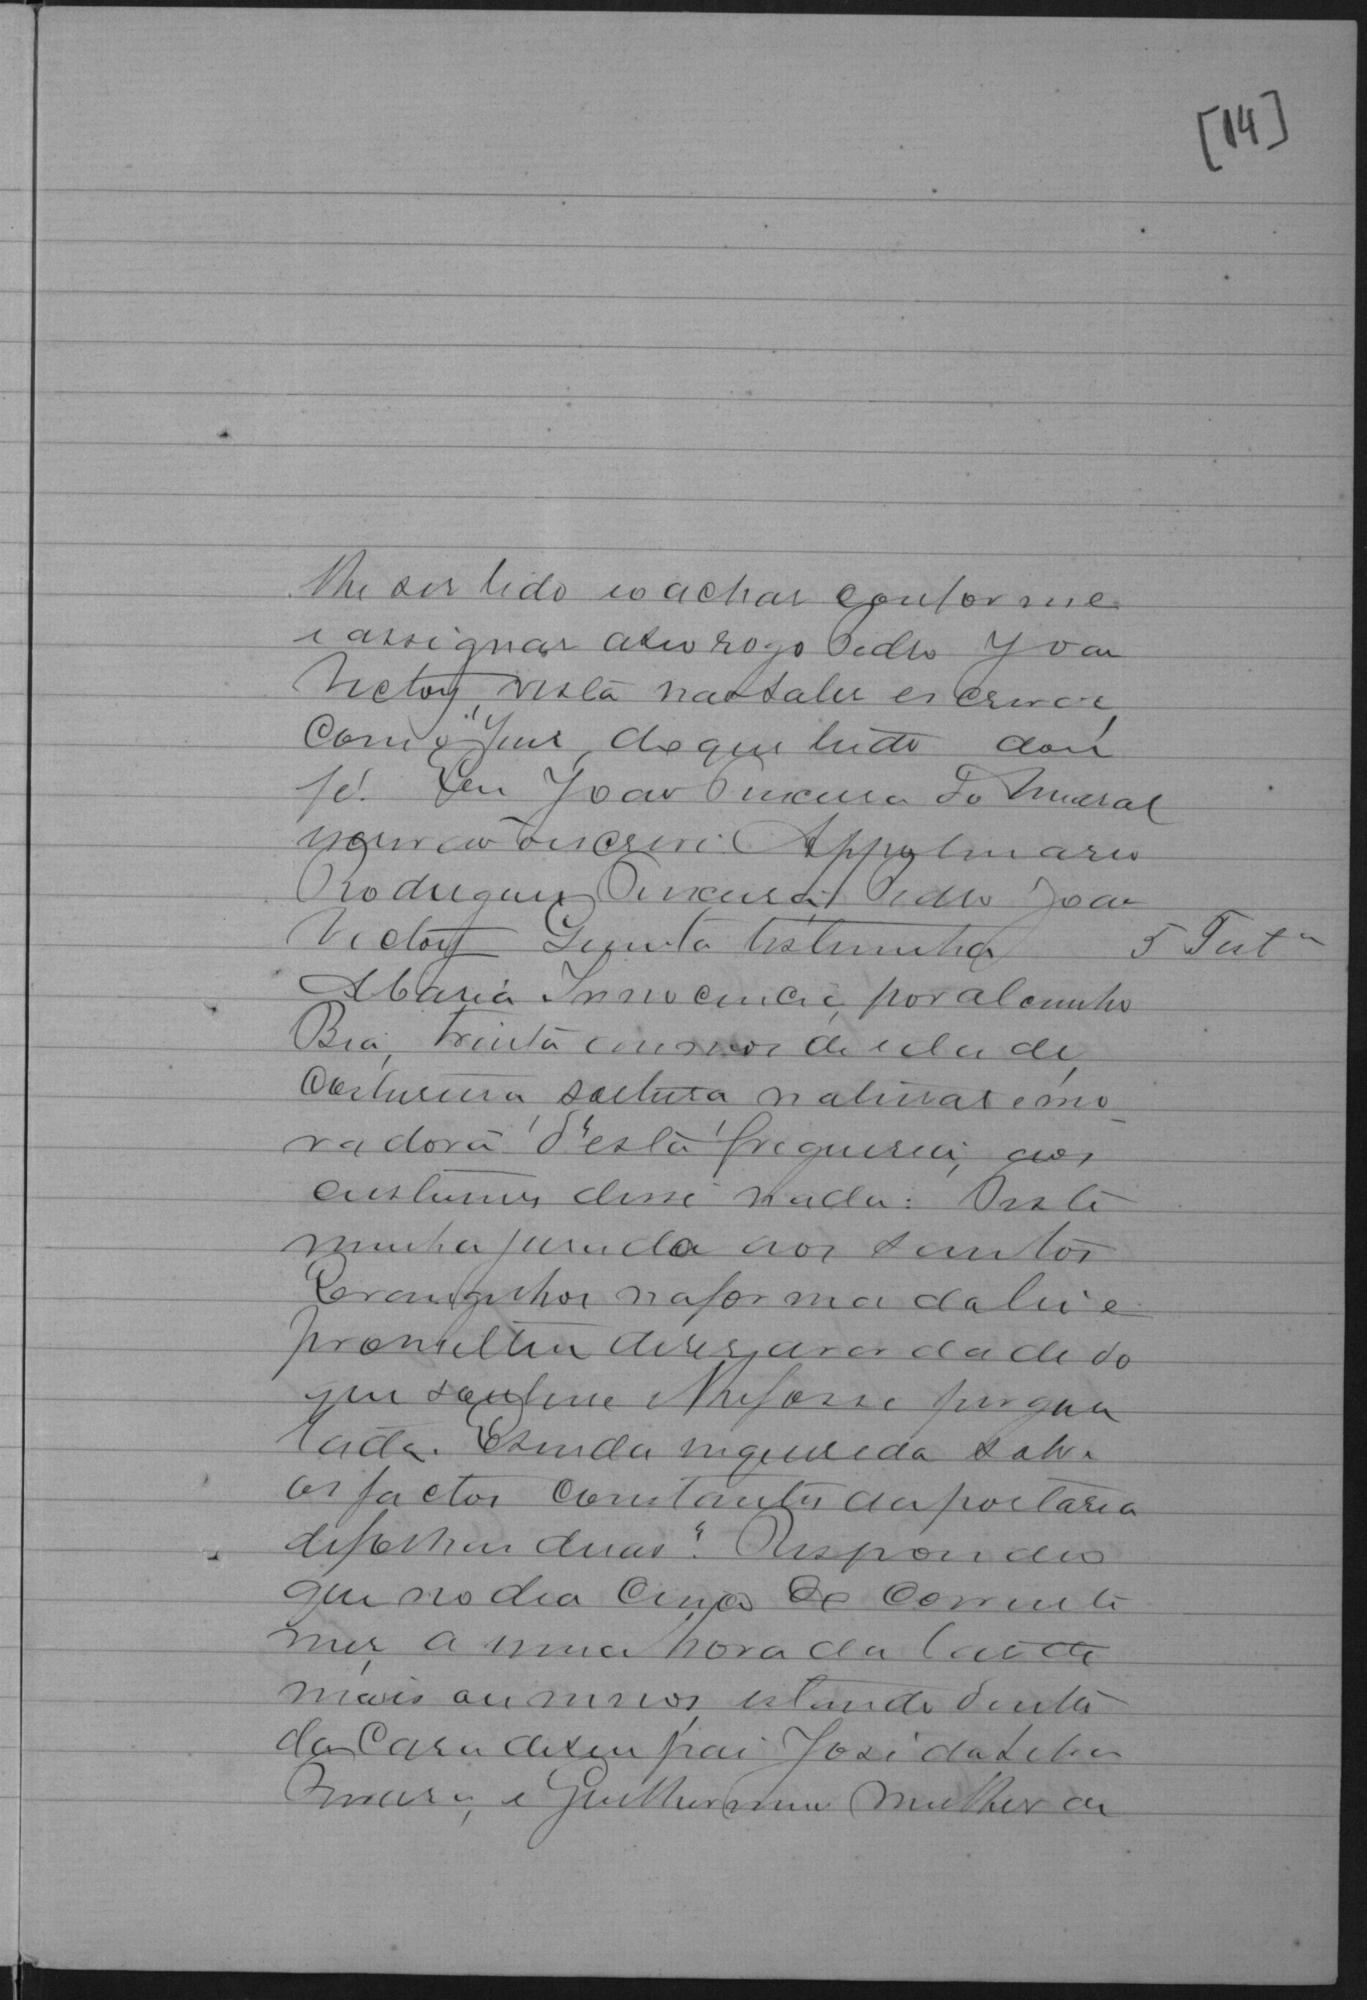 [14]
lhe ser lido e o achar conforme
e assignar a seu rogo Pedro Joao
Victor, vesta nao saber escrever,
com o Juiz, do que tudo dou
fé. Eu Joao Pereira do Amaral
escrivão o escrevi. Appolinario
Rodrigues Pereira. Pedro Joao
Victor Quinta testimunha
5 Testª
Maria Innocencia, por alcunho
Bia, trinta annos de edade,
costureira solteira natural e mo-
radora d'esta freguesia, aos
custumes disse nada: Teste
munha jurada aos Santos
Evangelhos na forma da lei e
prometteu diser a verdade do
que soubesse e lhe fosse pergun
tada. E sendo inquerida sobre
os factos constantes da portaria
de folhas duas. Respondeo
que no dia cinco do corrente
mez, a uma hora da tarde
mais ou menos, estando dentro
da casa de seu pai José da Silva
e Guilhermina mulher de